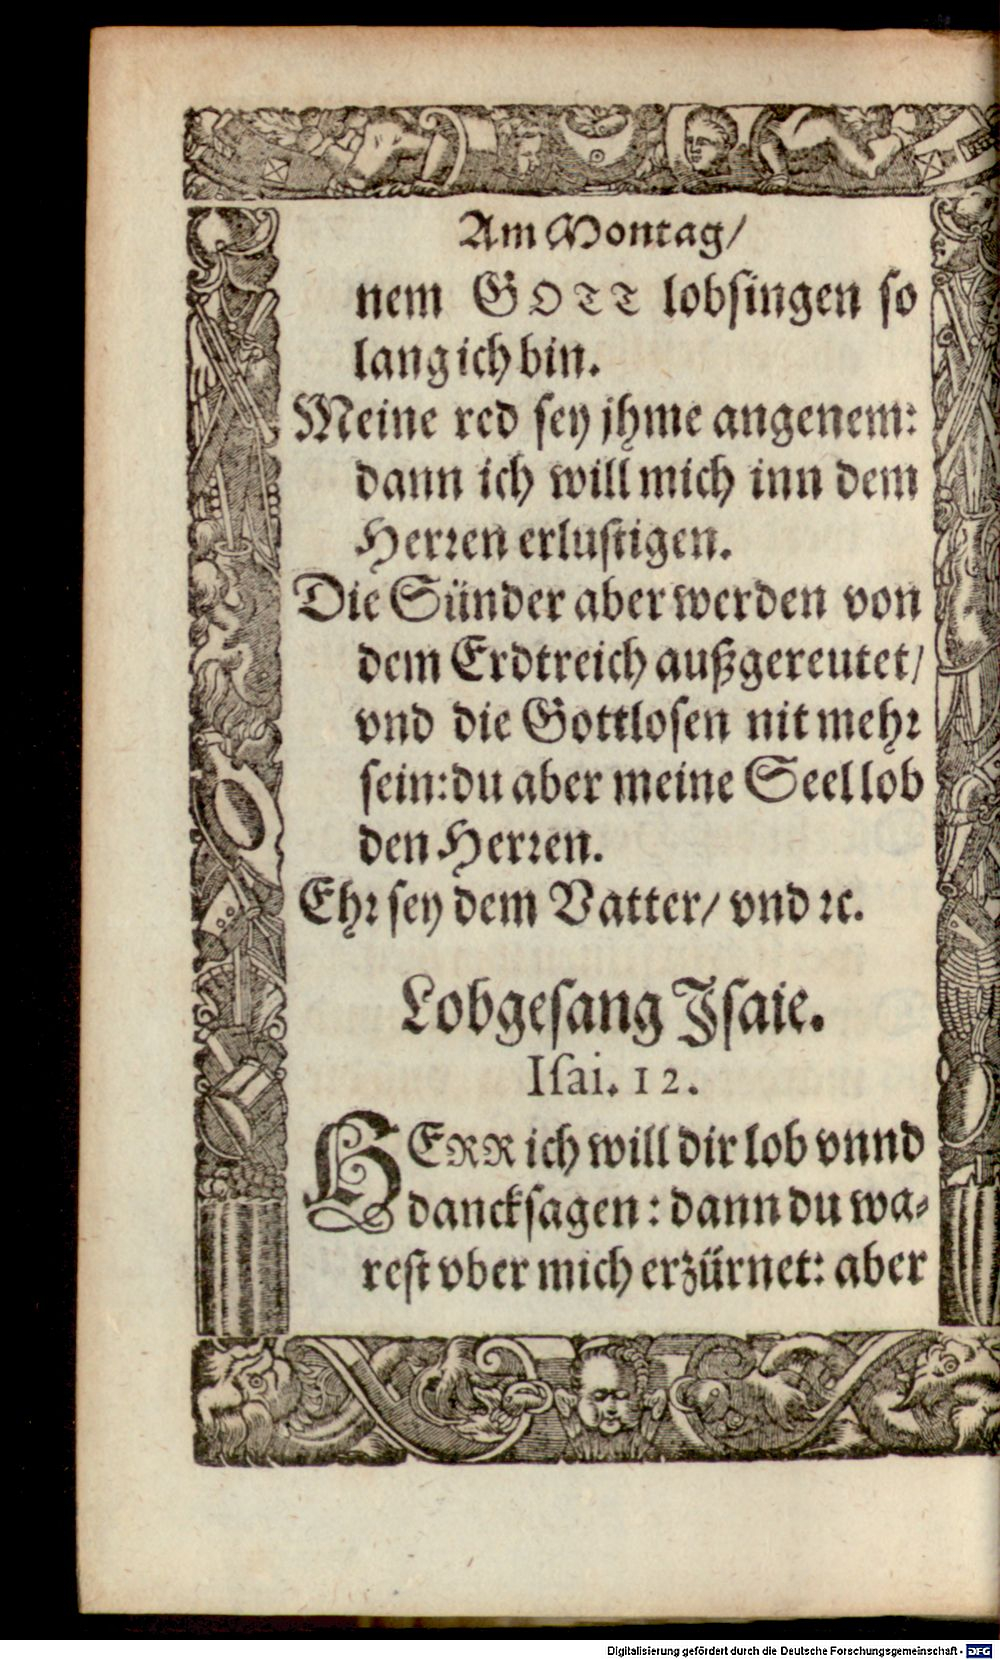 Am Montag/
nem GOTT lobsingen so
lang ich bin.
Meine red sey jhme angenem:
dann ich will mich inn dem
Herren erlustigen.
Die Sünder aber werden von
dem Erdtreich außgereutet/
vnd die Gottlosen nit mehr
sein: du aber meine Seel lob
den Herren.
Ehr sey dem Vatter/ vnd ꝛc.
Lobgesang Jsaie.
Isai. 12.
HERR ich will dir lob vnnd
dancksagen: dann du wa-
rest vber mich erzürnet: aber
Digitalisierung gefördert durch die Deutsche Forschungsgemeinschaft - DFG